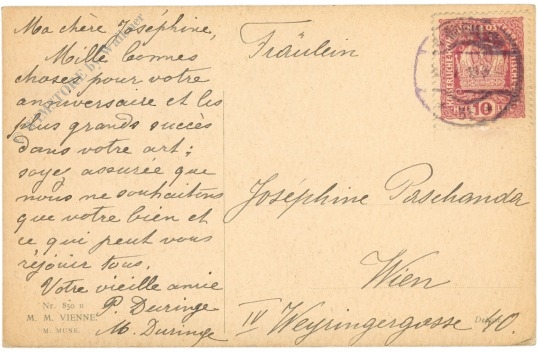 Ma chère Joséphine,
Mille bonnes
choses pour votre
anniversaire et les
plus grands succès
dans votre art;
soyez assurée que
nous ne souhaitons
que votre bien et
ce qui peut vous
réjouir tous.
Votre vieille amie
P. Duringe
M. Duringe
Nr. 850
M. M. VIENNE.
M. MUNK.
Fräulein
Joséphine Paschanda
Wien
IV Weyringergasse 40.
10